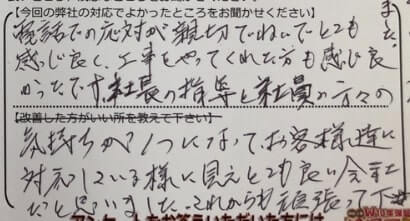 【今回の弊社の対応でよかったところをお聞かせください】
電話での応対が親切でねいでとても
感じ良く、工事をやってくれた方も感じ良
かったです。社長の指導と社員の方々の
【改善した方がいい所を教えて下さい】
気持ちが1つになって、お客様達に
対応している様に見えとても良い会社
だと思いました。これからも頑張って下
また、
アンケートにお答えいただいた方に